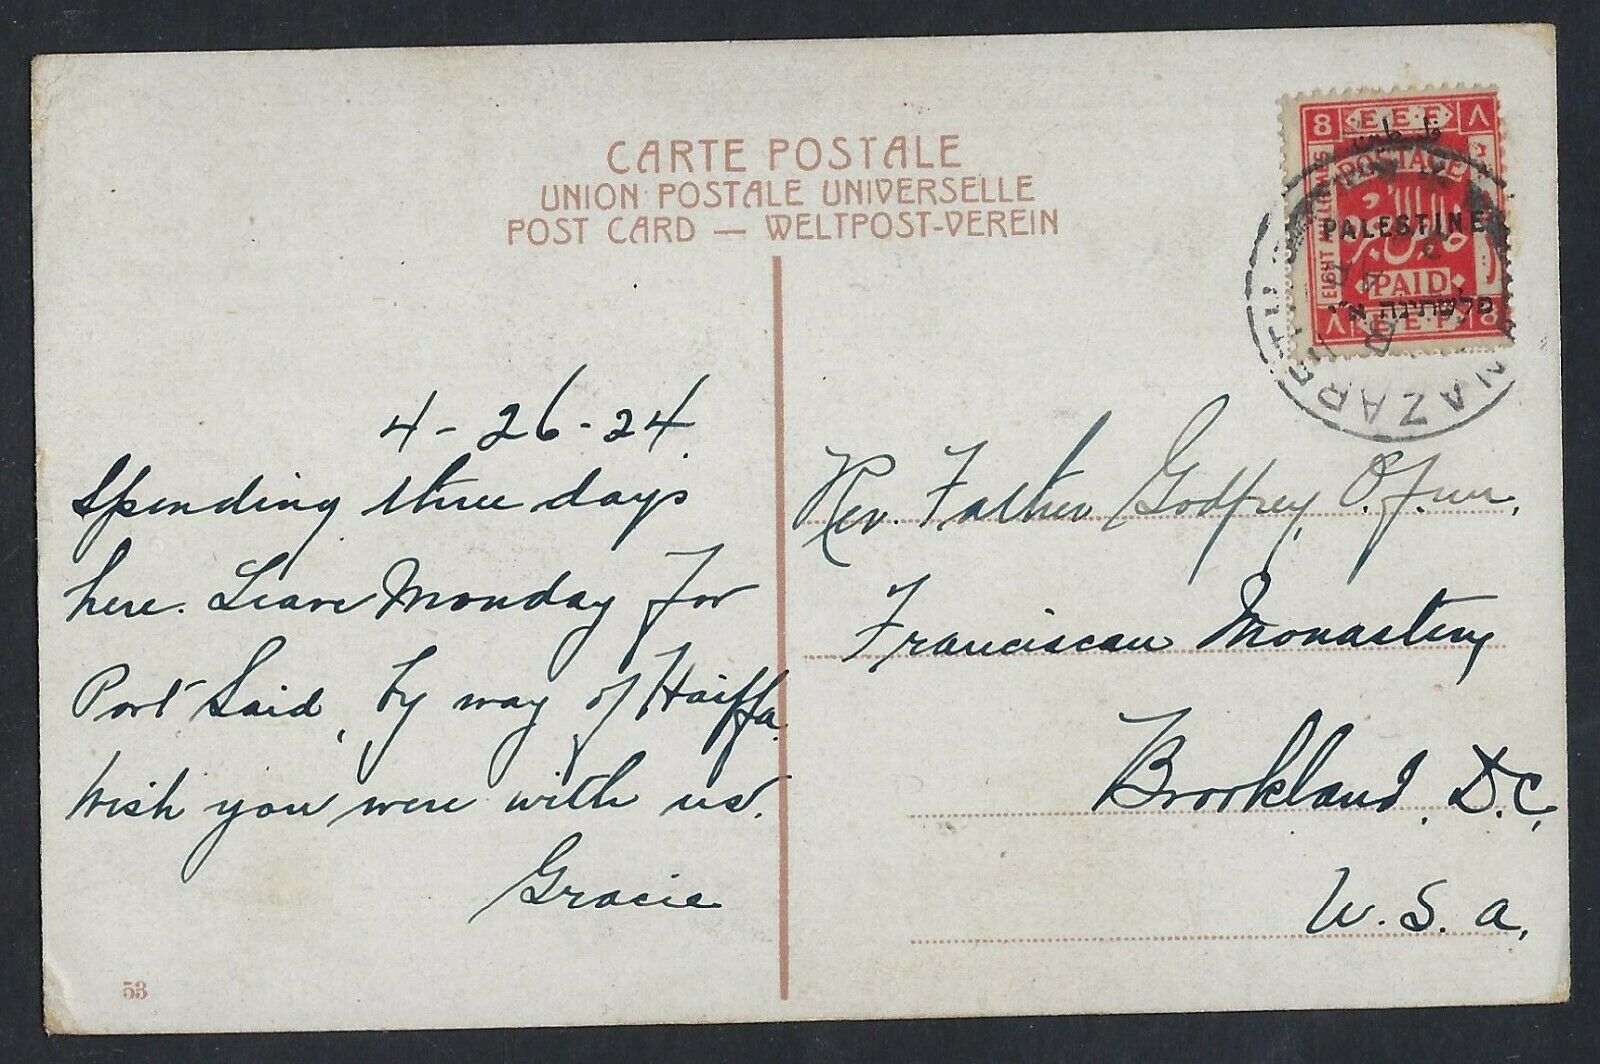 CARTE POSTALE
UNION POSTALE UNIVERSELLE
POST CARD — WELTPOST-VEREIN
8 E.E.F ٨
فلسطين
POSTAGE
EIGHT MILLIEMES
PALESTINE
PAID
פלשתינה א״י
٨ E.E.F 8
NAZARETH
4-26-24.
Spending three days
here. Leave Monday for
Port Said, by way of Haiffa.
Wish you were with us.
Gracie
Rev. Father Godfrey, O.F.M.,
Franciscan Monastery
Brookland, D.C.,
U.S.A.
53